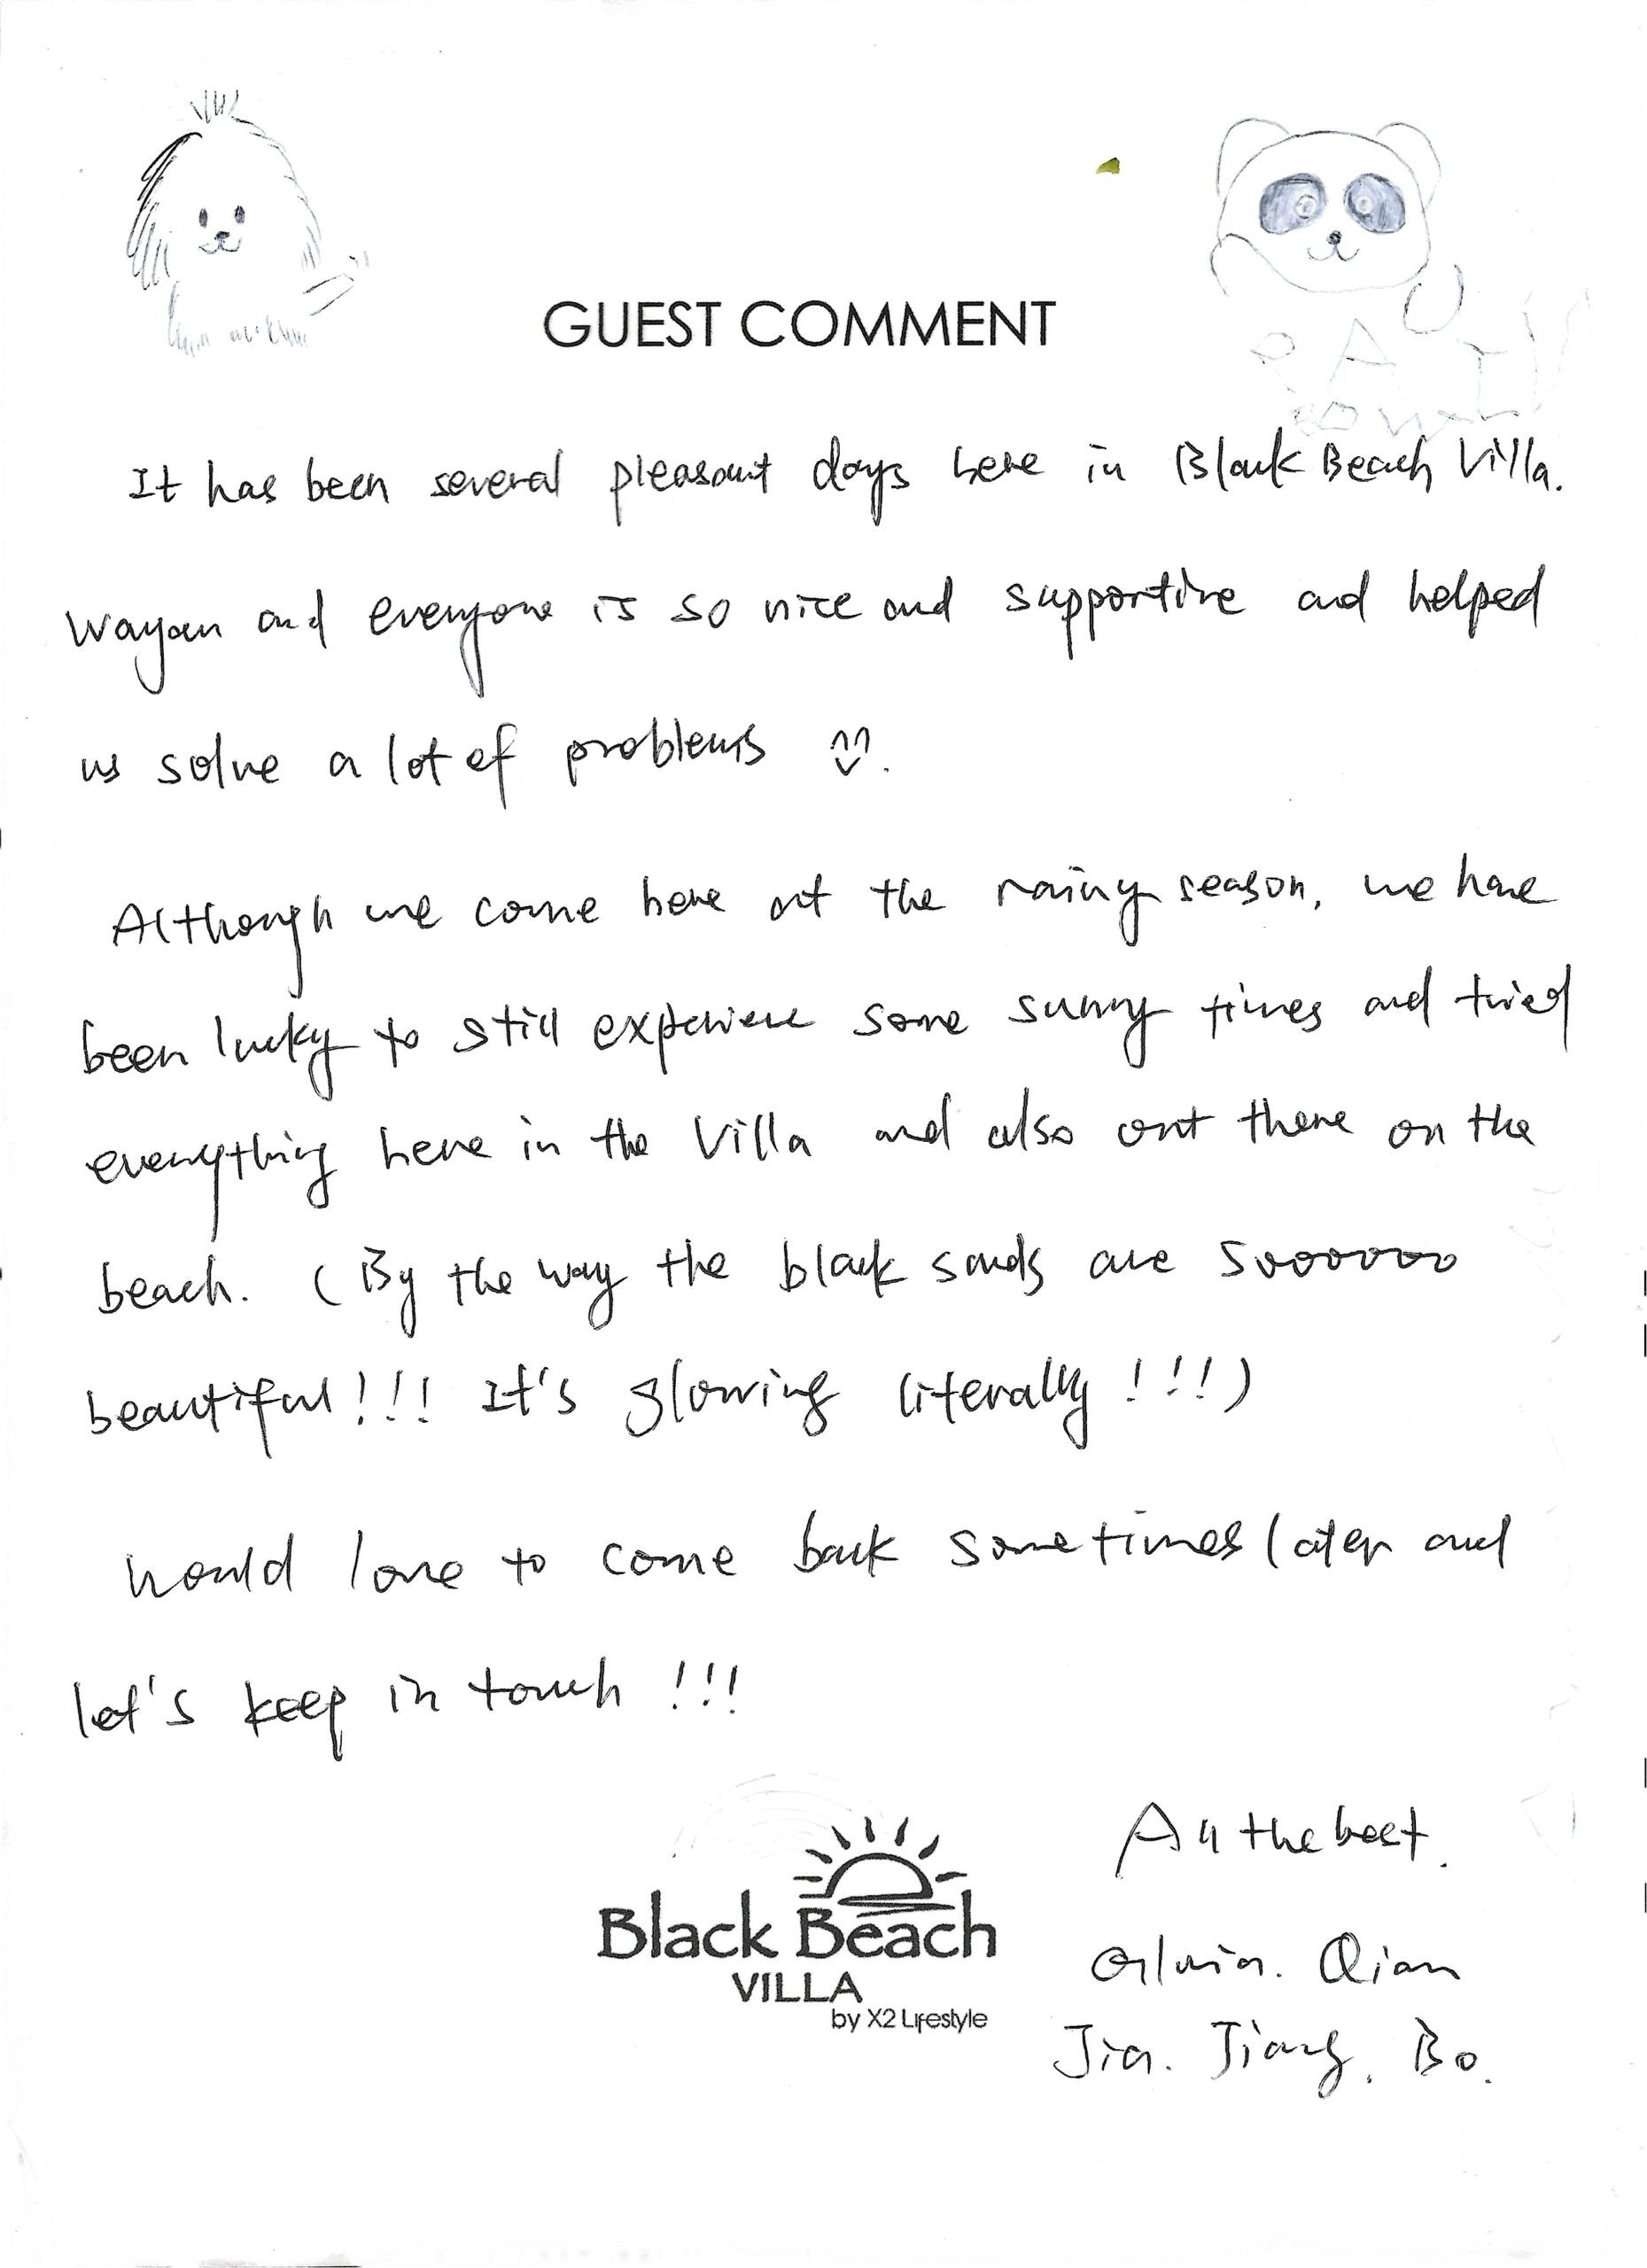 GUEST COMMENT
It has been several pleasant days here in Black Beach Villa.
Wayan and everyone is so nice and supportive and helped
us solve a lot of problems
Although we come here at the rainy season, we have
been lucky to still experience some sunny times and tried
everything here in the Villa and also out there on the
beach. (By the way the black sands are soooooo
beautiful!!! It's glowing literally!!!)
would love to come back sometimes later and
let's keep in touch!!!
All the best.
Olivia. Qian
Jia. Jiang. Bo.
Black Beach
VILLA
by X2 Lifestyle